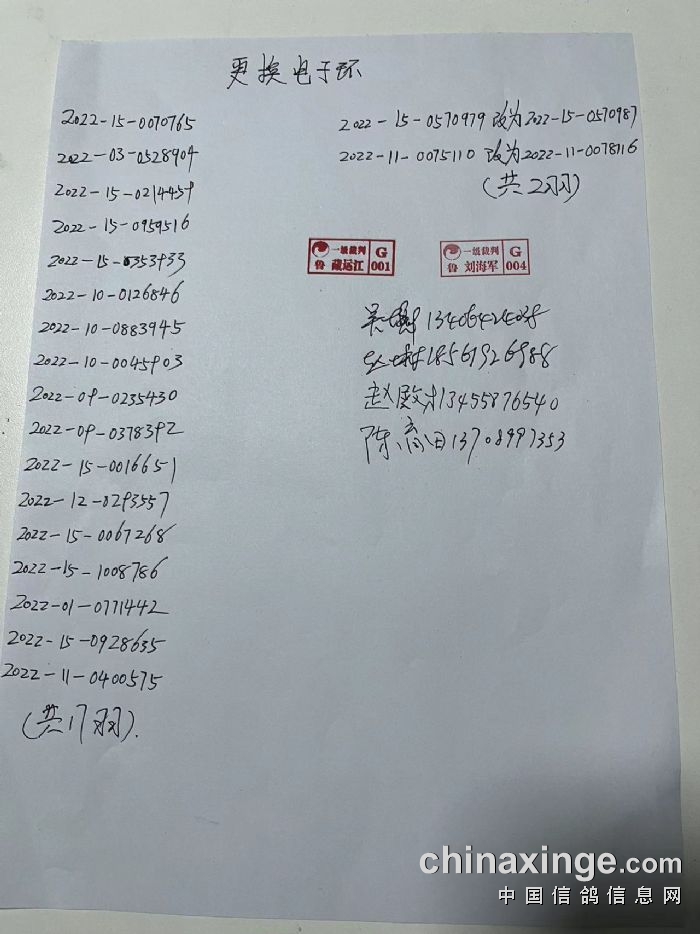 更换电子环
2022-15-0070765
2022-03-0528904
2022-15-0214459
2022-15-0959516
2022-15-0353933
2022-10-0126846
2022-10-0883945
2022-10-0045903
2022-09-0235430
2022-09-0378392
2022-15-0016651
2022-12-0293557
2022-15-0067268
2022-15-1008786
2022-01-0771442
2022-15-0928635
2022-11-0400575
(共17羽).
2022-15-0570979 改为2022-15-0570987
2022-11-0075110 改为2022-11-0078116
(共2羽)
一级裁判 G
鲁 藏运江 001
一级裁判 G
鲁 刘海军 004
18561926988
赵殿才13455876540
陈 13708997353
chinaxinge.com
中国信鸽信息网